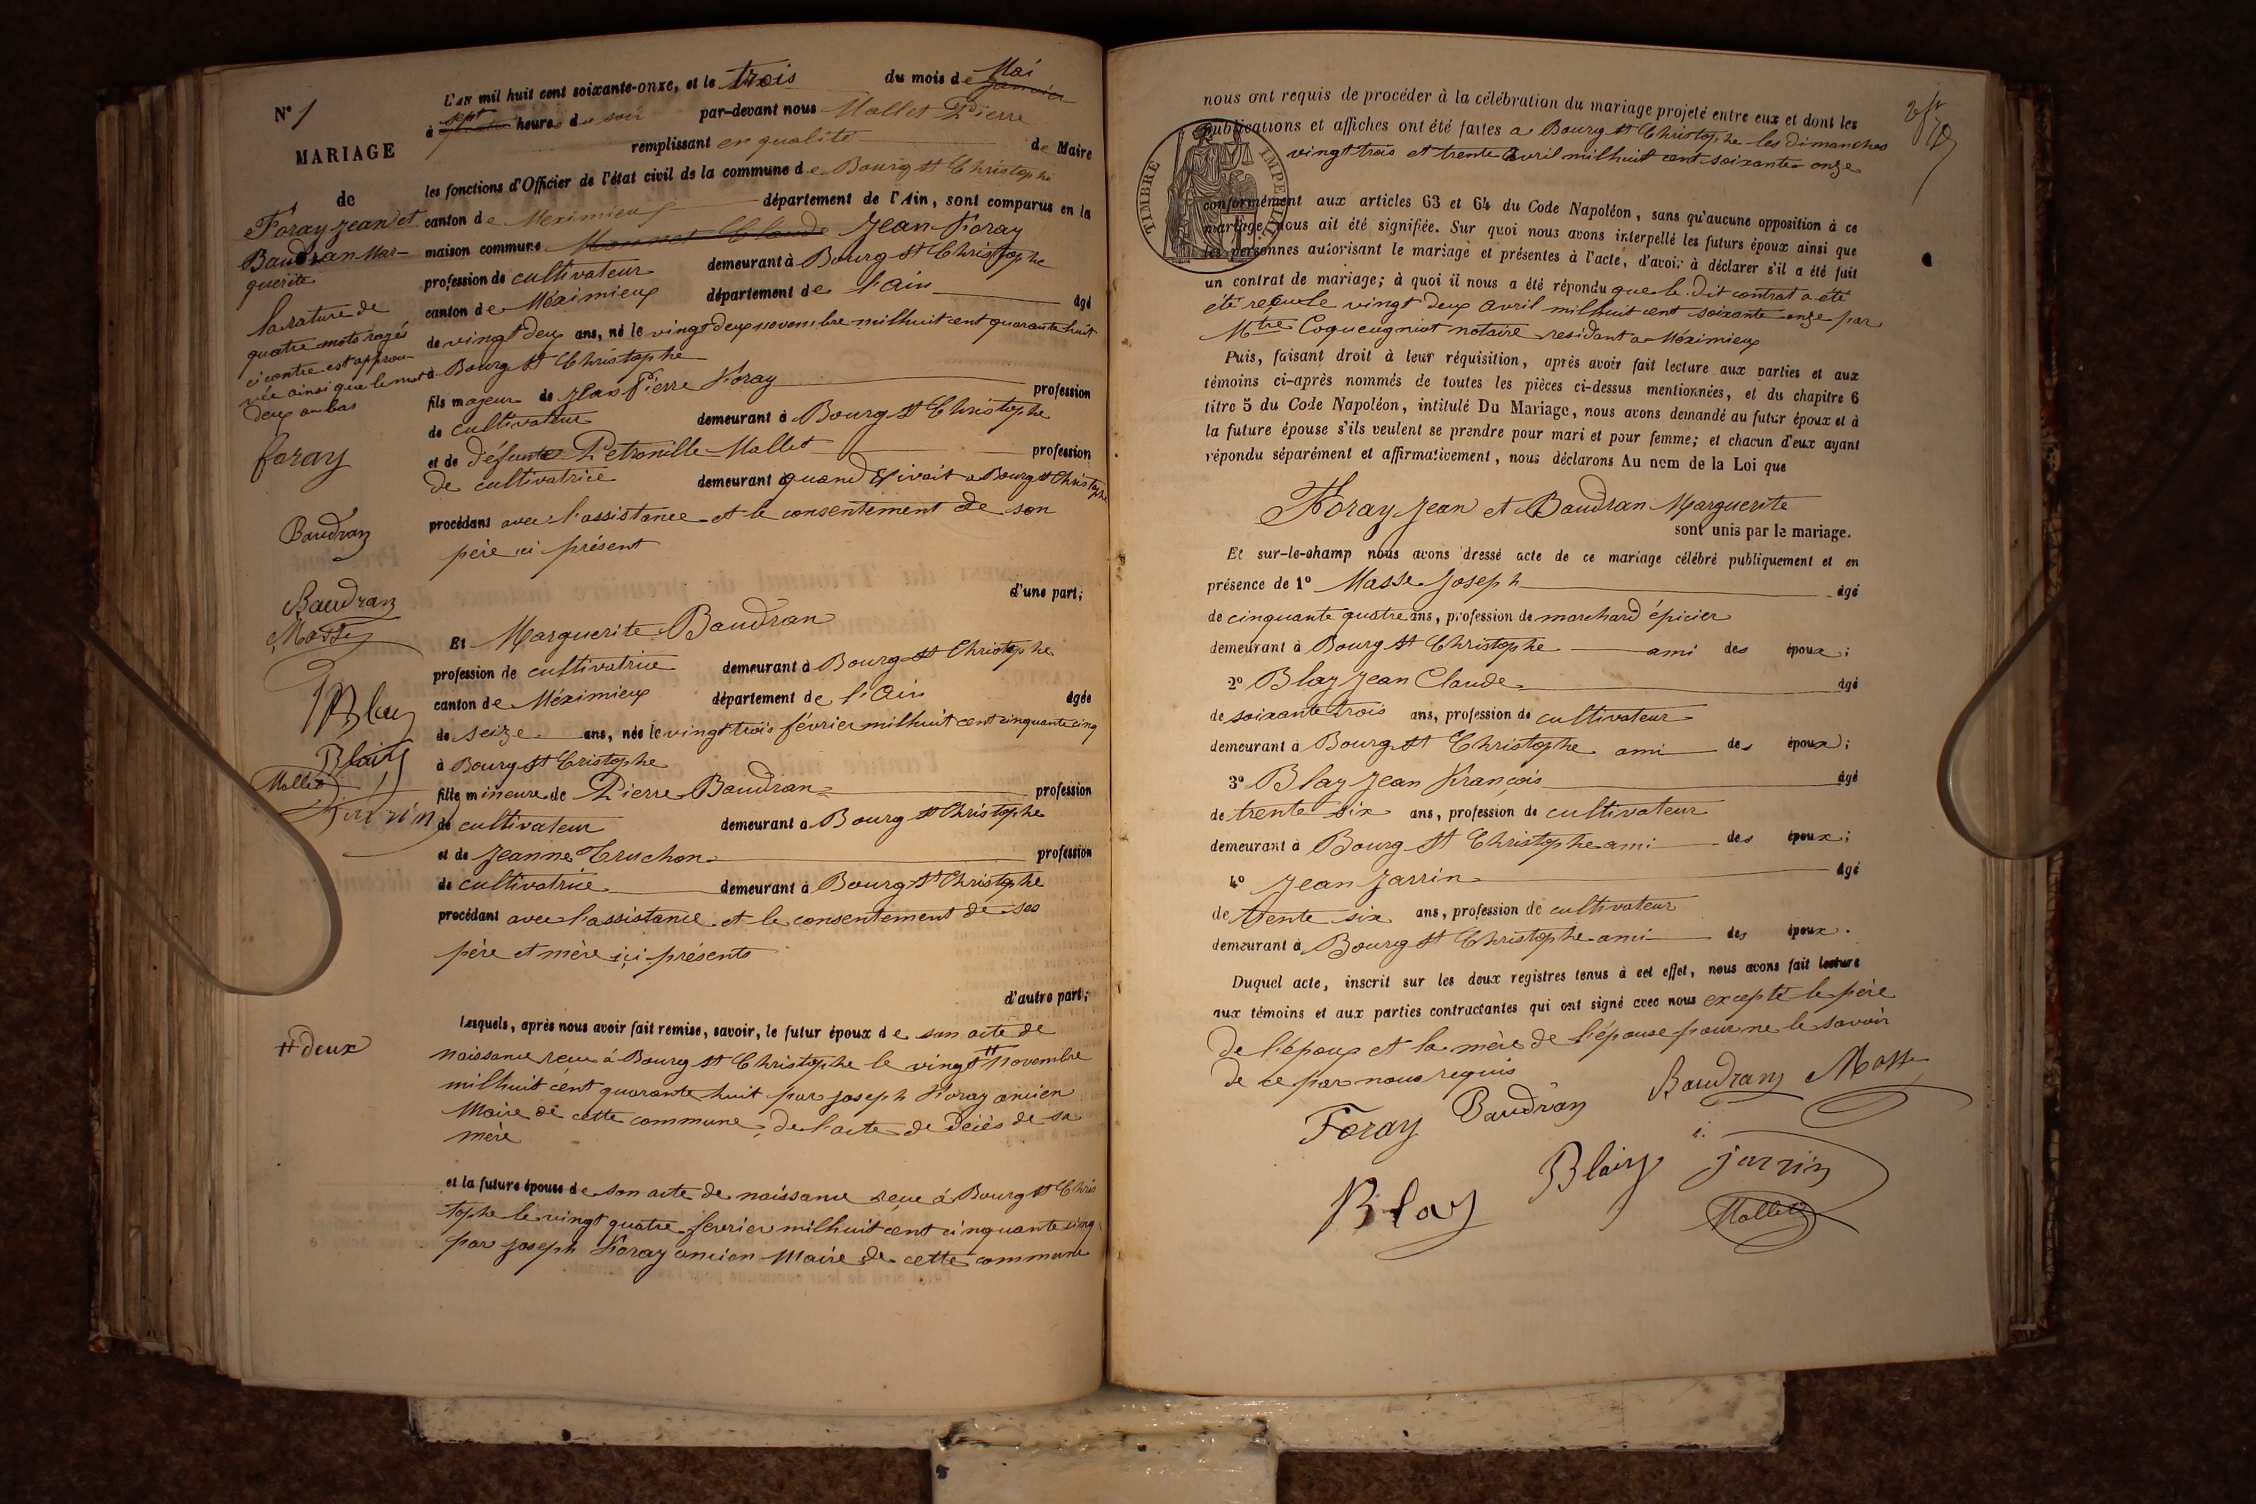 N° 1
MARIAGE
de
Foray Jean et
Baudran Mar-
guerite
la rature de
quatre mots rayés
ci contre est approu-
vée ainsi que le mot
deux au bas
foray
Baudran
Baudran
Masse
Blay
Blay
Mallet
Jarrin
# deux
L'an mil huit cent soixante-onze, et le trois du mois de Mai janvier
à sept heures du soir par-devant nous Mallet Pierre
remplissant en qualité de Maire
les fonctions d'Officier de l'état civil de la commune de Bourg St Christophe
canton de Meximieux département de l'Ain, sont comparus en la
maison commune Claude Jean Foray
profession de cultivateur demeurant à Bourg St Christophe
canton de Méximieux département de l'Ain âgé
de vingt deux ans, né le vingt deux novembre mil huit cent quarante huit
à Bourg St Christophe
fils majeur de Jean Pierre Foray profession
de cultivateur demeurant à Bourg St Christophe
et de défunte Pétronille Mallet profession
de cultivatrice demeurant quand vivait a Bourg St Christophe
procédant avec l'assistance et le consentement de son
père ici présent
d'une part;
Et Marguerite Baudran
profession de cultivatrice demeurant à Bourg St Christophe
canton de Méximieux département de l'Ain âgée
de seize ans, née le vingt trois février mil huit cent cinquante cinq
à Bourg St Cristophe
fille mineure de Pierre Baudran profession
de cultivateur demeurant à Bourg St Christophe
et de Jeanne Truchon profession
de cultivatrice demeurant à Bourg St Christophe
procédant avec l'assistance et le consentement de ses
père et mère ici présents
d'autre part;
Lesquels, après nous avoir fait remise, savoir, le futur époux de son acte de
naissance reçu à Bourg St Christophe le vingt # novembre
mil huit cent quarante huit par Joseph Foray ancien
Maire de cette commune, de l'acte de décès de sa
mère
et la future épouse de son acte de naissance reçu à Bourg St Chris
tophe le vingt quatre fevrier mil huit cent cinquante cinq
par Joseph Foray ancien Maire de cette commune
nous ont requis de procéder à la célébration du mariage projeté entre eux et dont les
publications et affiches ont été faites a Bourg St Christophe les dimanches
vingt trois et trente Avril mil huit cent soixante onze
TIMBRE IMPERIAL
conformément aux articles 63 et 64 du Code Napoléon, sans qu'aucune opposition à ce
mariage nous ait été signifiée. Sur quoi nous avons interpellé les futurs époux ainsi que
les personnes autorisant le mariage et présentes à l'acte, d'avoir à déclarer s'il a été fait
un contrat de mariage; à quoi il nous a été répondu que le dit contrat a été
été reçu le vingt deux avril mil huit cent soixante onze par
Mtre Coqueugniot notaire residant a Méximieux
Puis, faisant droit à leur réquisition, après avoir fait lecture aux parties et aux
témoins ci-après nommés de toutes les pièces ci-dessus mentionnées, et du chapitre 6
titre 5 du Code Napoléon, intitulé Du Mariage, nous avons demandé au futur époux et à
la future épouse s'ils veulent se prendre pour mari et pour femme; et chacun d'eux ayant
répondu séparément et affirmativement, nous déclarons Au nom de la Loi que
Foray Jean et Baudran Marguerite
sont unis par le mariage.
Et sur-le-champ nous avons dressé acte de ce mariage célébré publiquement et en
présence de 1° Masse Joseph âgé
de cinquante quatre ans, profession de marchand épicier
demeurant à Bourg St Christophe ami des époux;
2° Blay Jean Claude âgé
de soixante trois ans, profession de cultivateur
demeurant à Bourg St Christophe ami des époux;
3° Blay Jean François âgé
de trente six ans, profession de cultivateur
demeurant à Bourg St Christophe ami des époux;
4° Jean Jarrin âgé
de trente six ans, profession de cultivateur
demeurant à Bourg St Christophe ami des époux.
Duquel acte, inscrit sur les deux registres tenus à cet effet, nous avons fait lecture
aux témoins et aux parties contractantes qui ont signé avec nous excepté le père
de l'époux et la mère de l'épouse pour ne le savoir
de ce par nous requis
Foray Baudran Baudran Masse
Blay Blay jarrin
Mallet